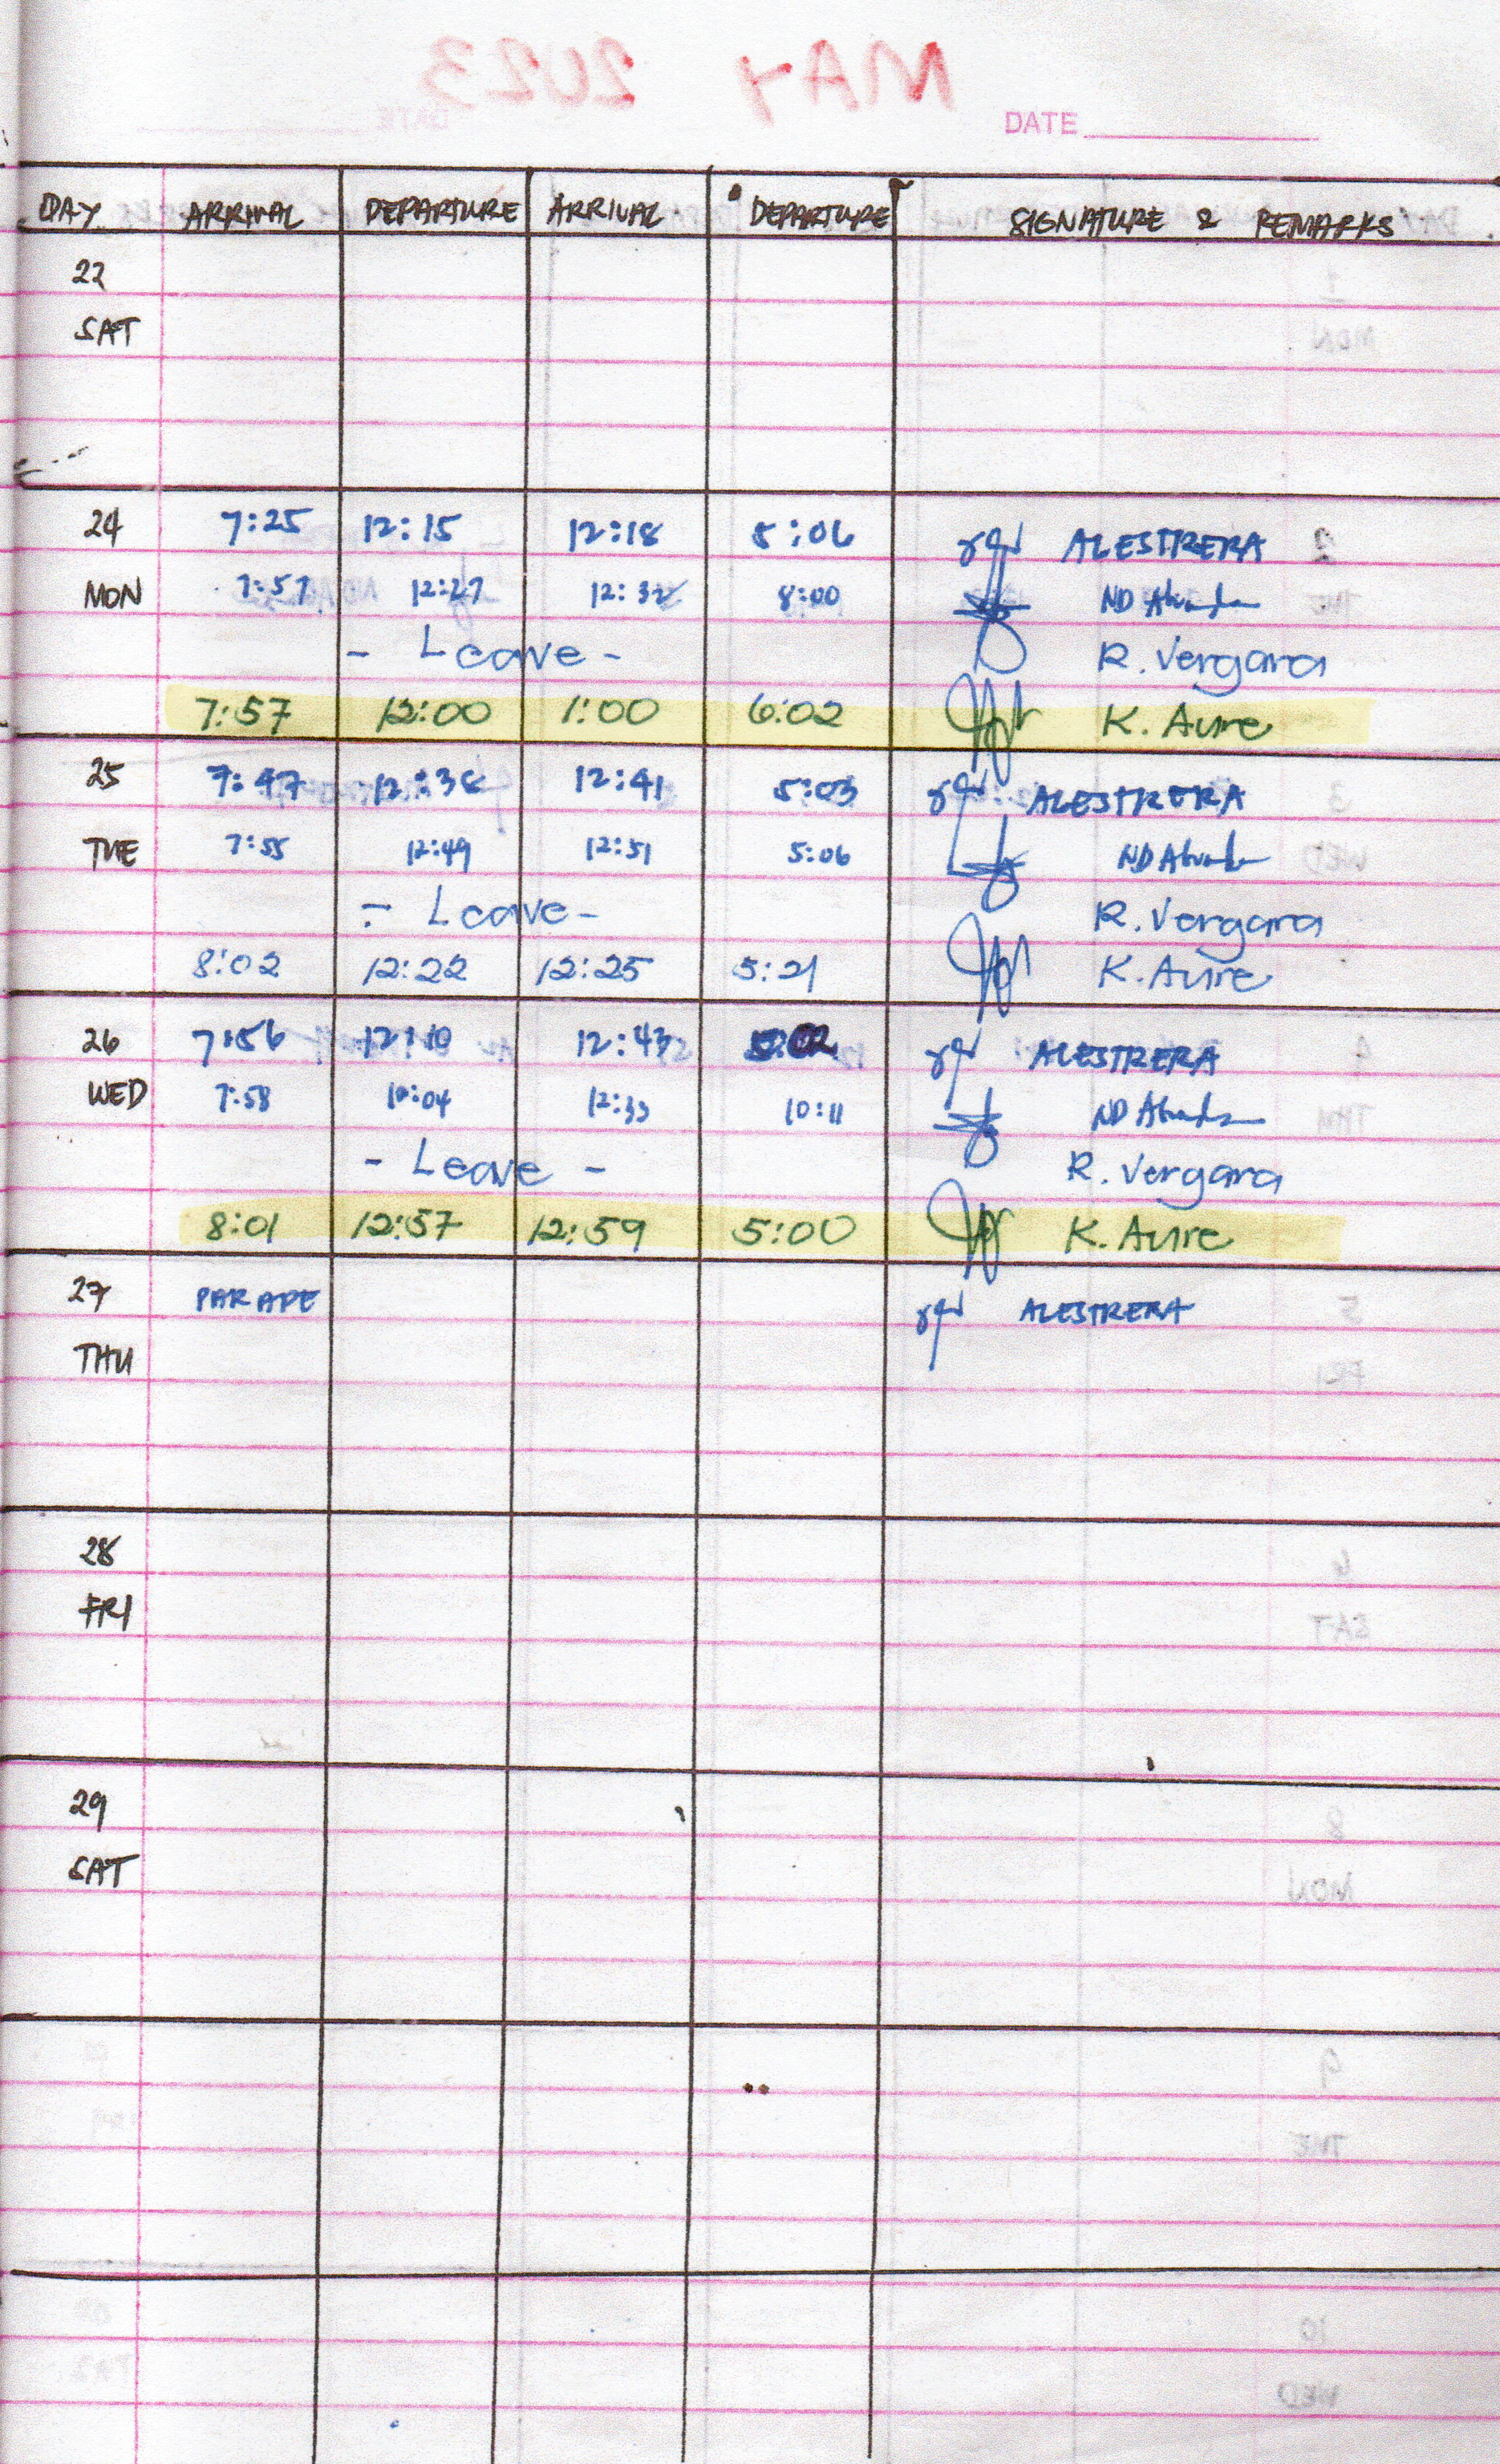 MAY 2023
DATE
DAY ARRIVAL DEPARTURE ARRIVAL DEPARTURE SIGNATURE & REMARKS
22
SAT
24 7:25 12:15 12:18 5:06 ALESTRERA
MON 7:57 12:27 12:32 8:00 ND
- Leave - R. Vergara
7:57 12:00 1:00 6:02 K. Aure
25 7:47 12:38 12:41 5:03 ALESTRERA
TUE 7:55 12:49 12:51 5:06 ND
- Leave - R. Vergara
8:02 12:22 12:25 5:21 K. Aure
26 7:56 12:10 12:43 5:02 ALESTRERA
WED 7:58 12:33 10:11 ND
- Leave - R. Vergara
8:01 12:57 12:59 5:00 K. Aure
27 PARADE ALESTRERA
THU
28
FRI
29
SAT